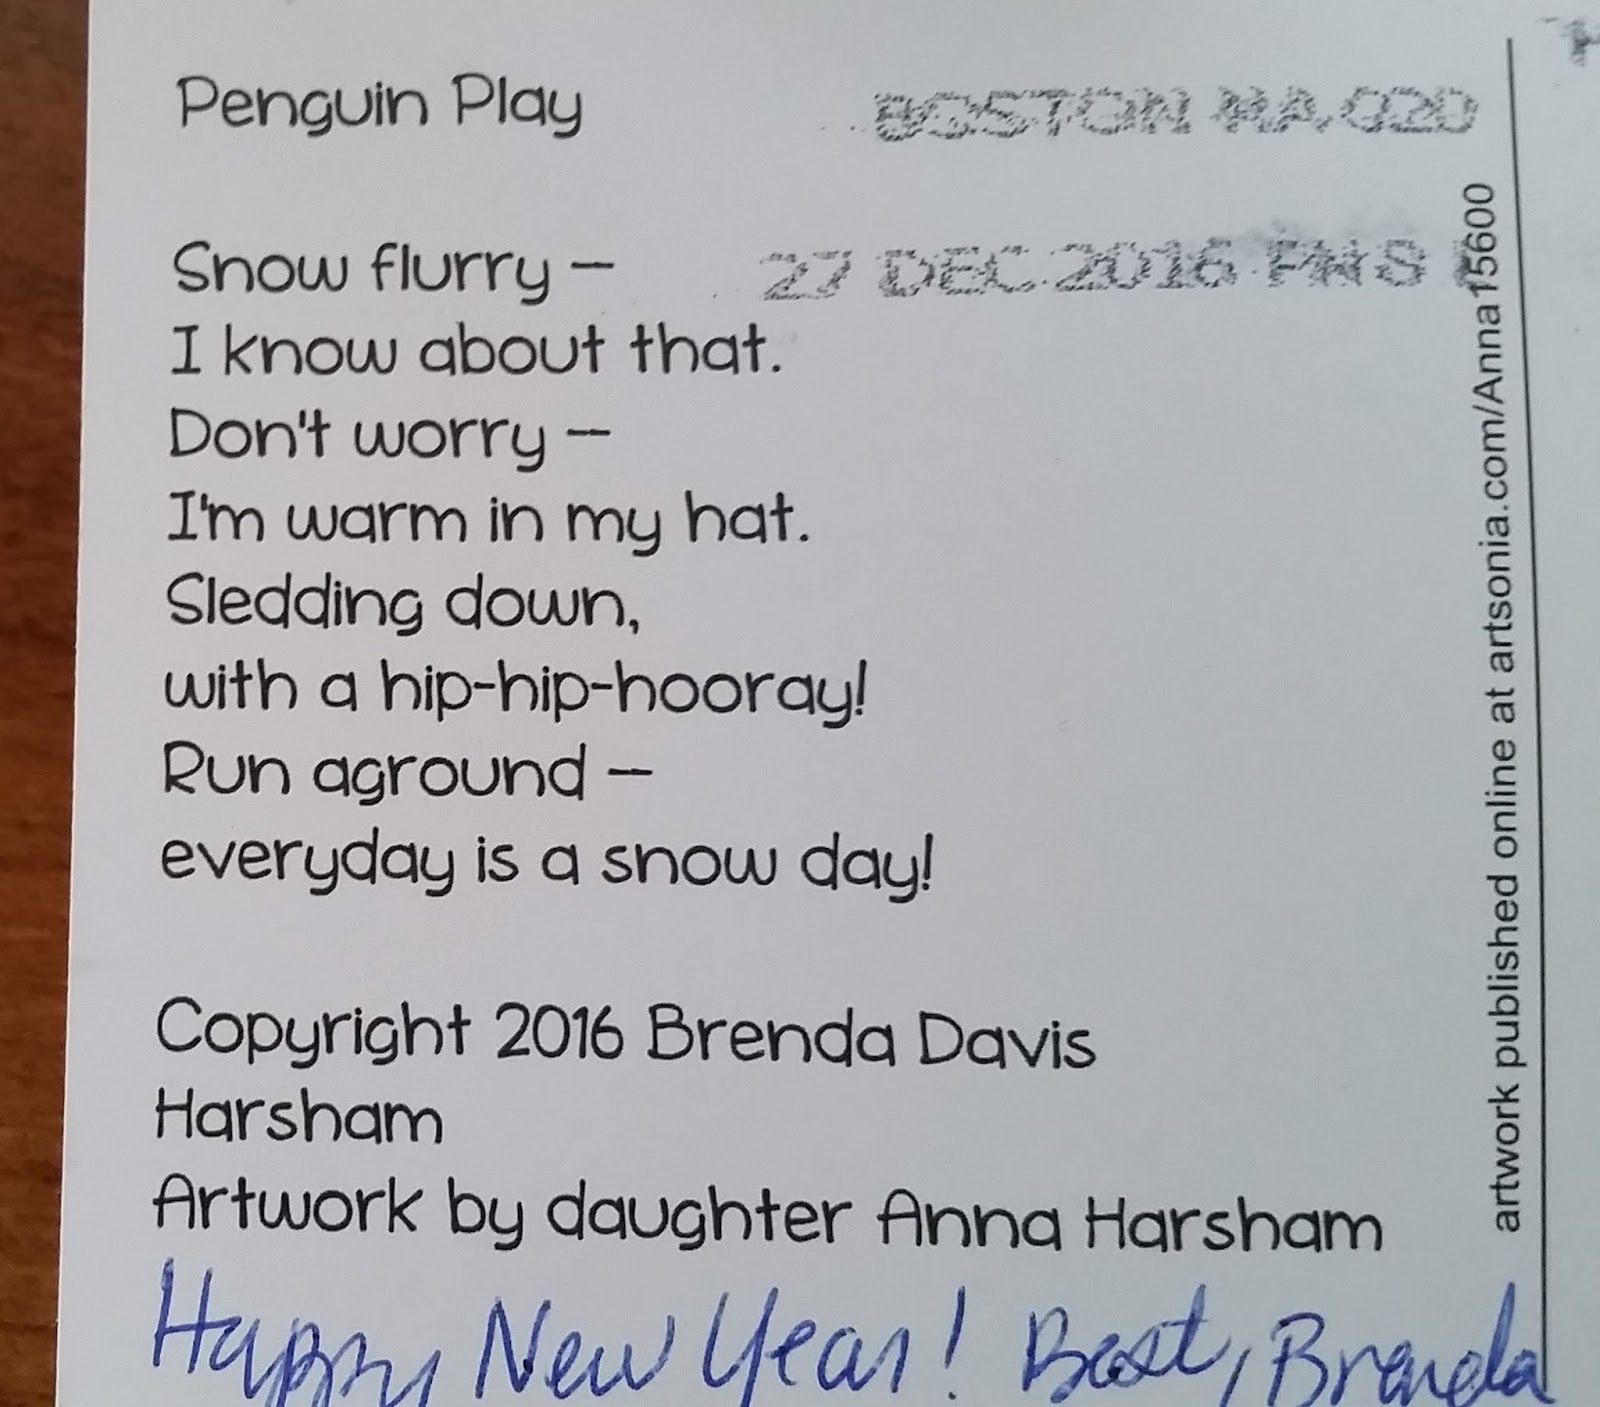 Penguin Play
BOSTON MA 020
Snow flurry –
27 DEC 2016 PM 8
I know about that.
Don't worry –
I'm warm in my hat.
Sledding down,
with a hip-hip-hooray!
Run aground –
everyday is a snow day!
Copyright 2016 Brenda Davis
Harsham
Artwork by daughter Anna Harsham
Happy New Year! Best, Brenda
artwork published online at artsonia.com/Anna15600